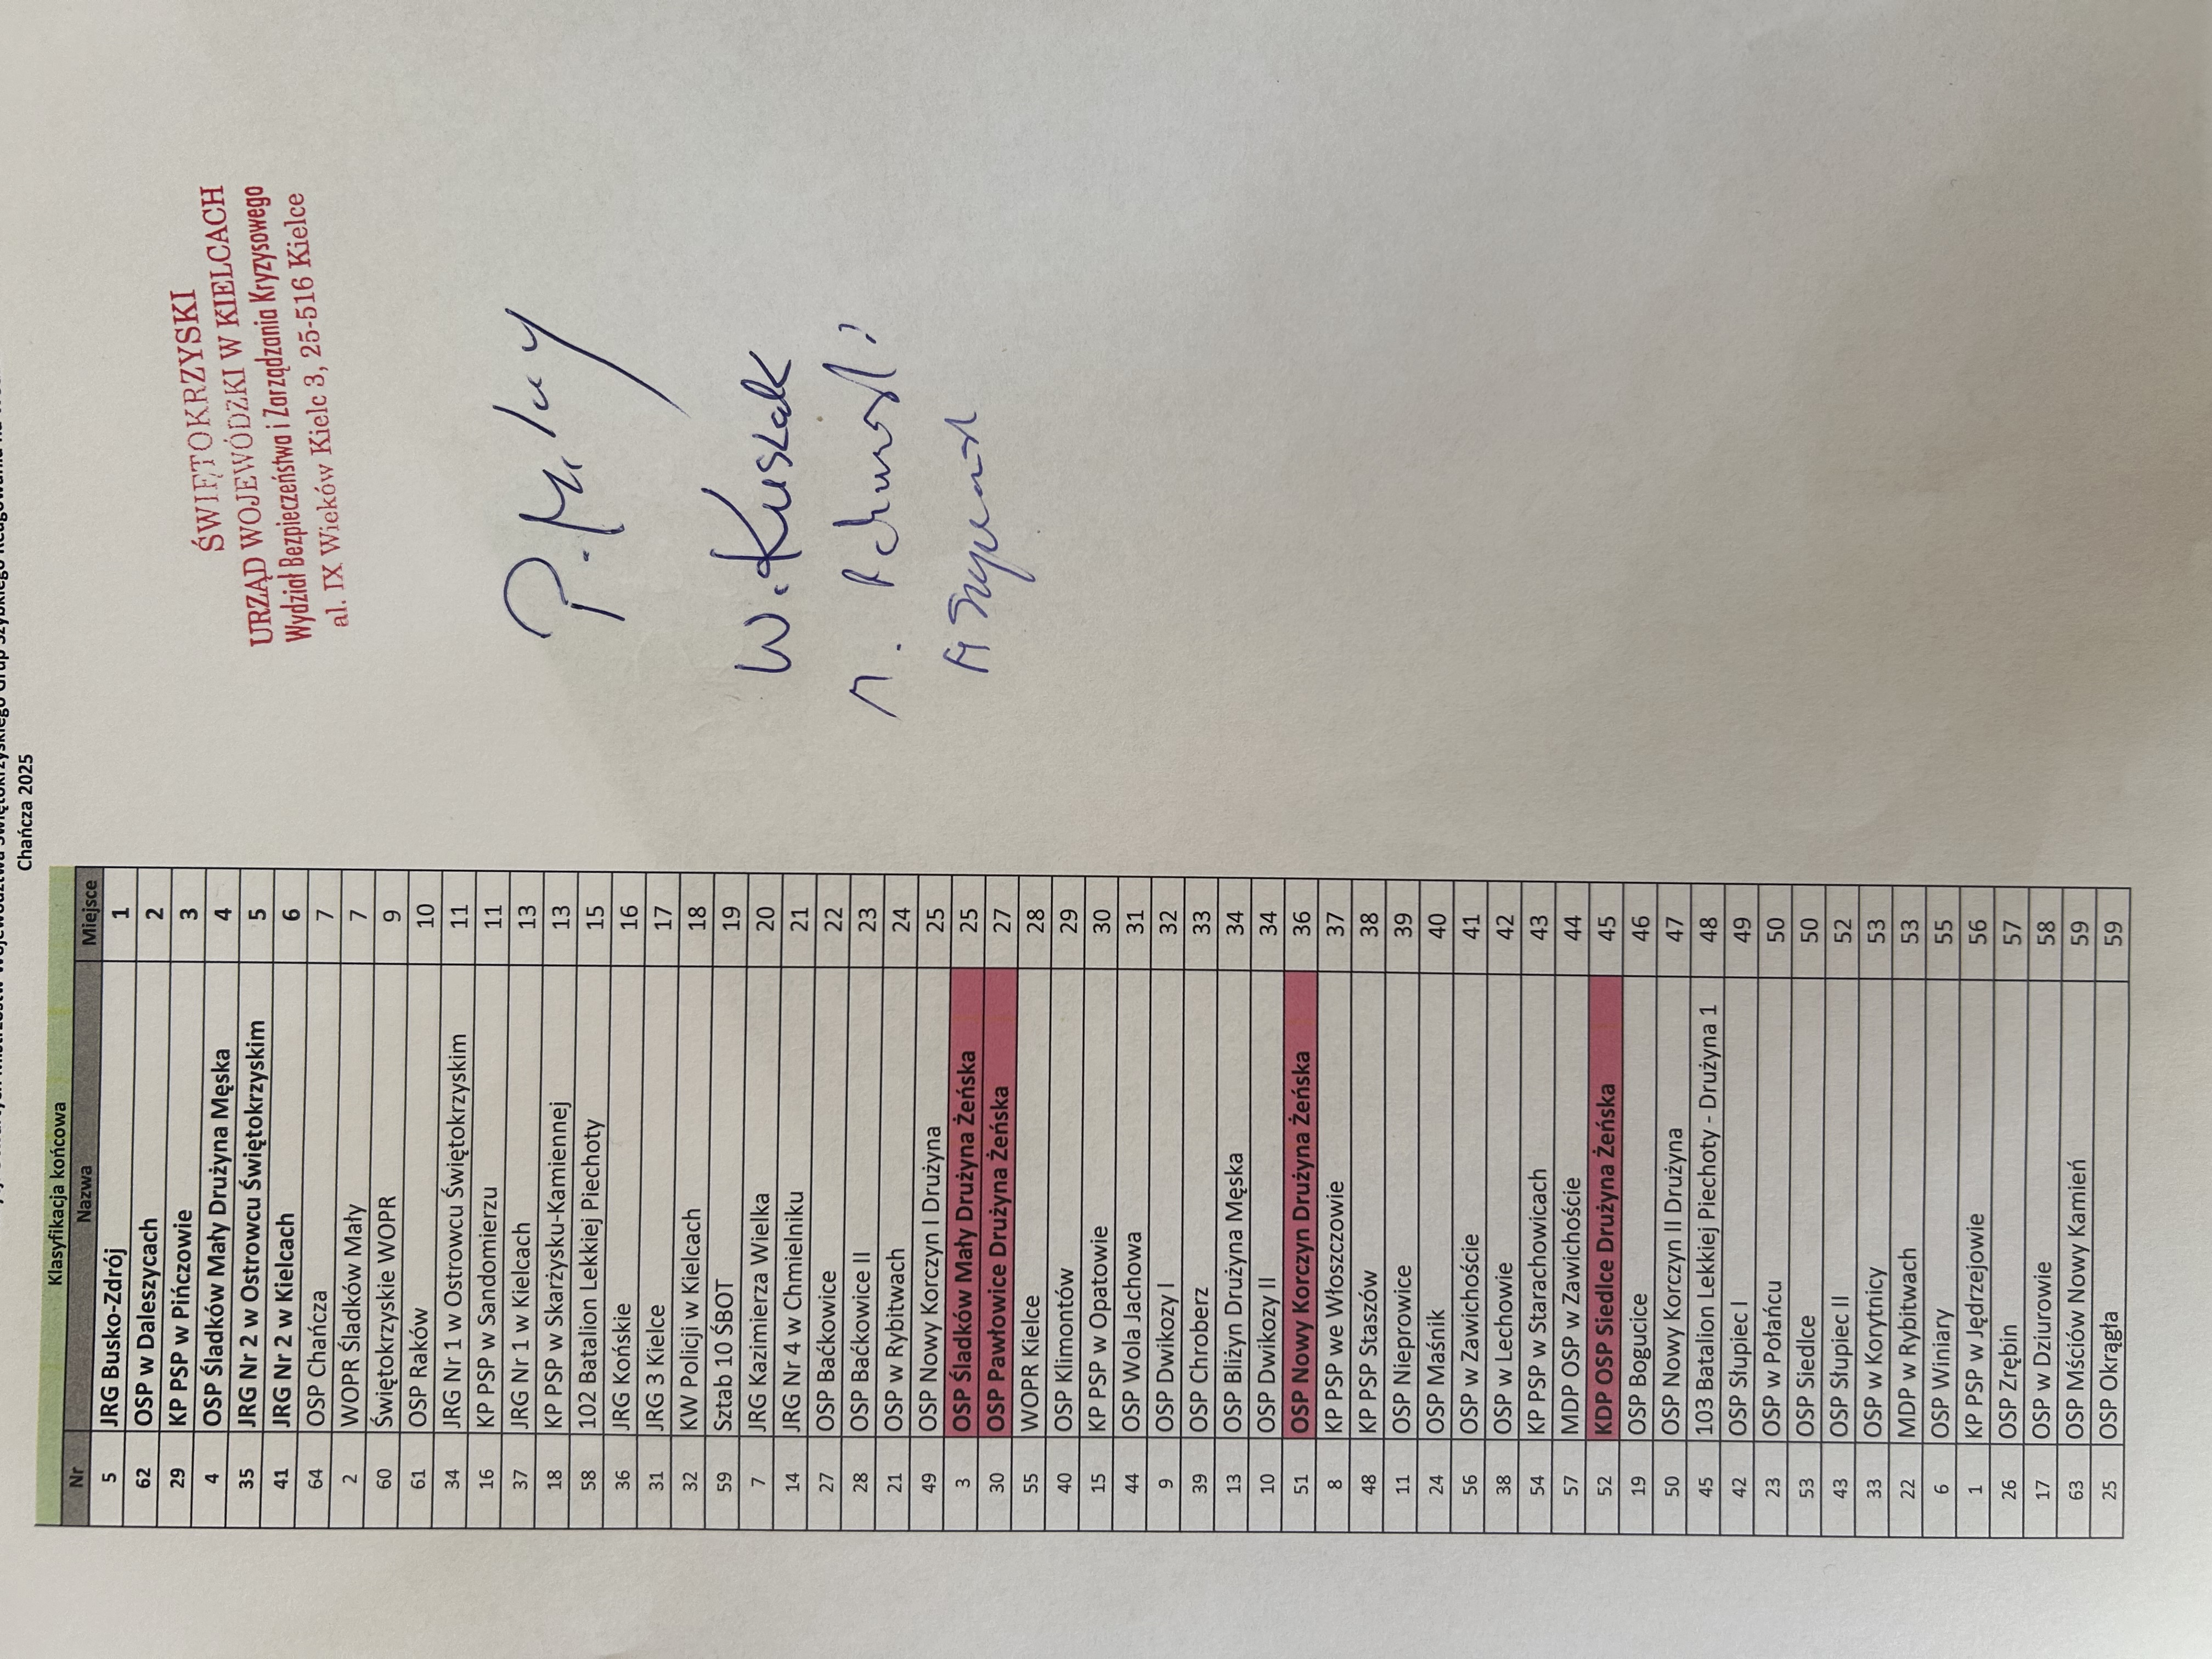 Chańcza 2025
Klasyfikacja końcowa
Nr Nazwa Miejsce
5 JRG Busko-Zdrój 1
62 OSP w Daleszycach 2
29 KP PSP w Pińczowie 3
4 OSP Śladków Mały Drużyna Męska 4
35 JRG Nr 2 w Ostrowcu Świętokrzyskim 5
41 JRG Nr 2 w Kielcach 6
64 OSP Chańcza 7
2 WOPR Śladków Mały 7
60 Świętokrzyskie WOPR 9
61 OSP Raków 10
34 JRG Nr 1 w Ostrowcu Świętokrzyskim 11
16 KP PSP w Sandomierzu 11
37 JRG Nr 1 w Kielcach 13
18 KP PSP w Skarżysku-Kamiennej 13
58 102 Batalion Lekkiej Piechoty 15
36 JRG Końskie 16
31 JRG 3 Kielce 17
32 KW Policji w Kielcach 18
59 Sztab 10 ŚBOT 19
7 JRG Kazimierza Wielka 20
14 JRG Nr 4 w Chmielniku 21
27 OSP Baćkowice 22
28 OSP Baćkowice II 23
21 OSP w Rybitwach 24
49 OSP Nowy Korczyn I Drużyna 25
3 OSP Śladków Mały Drużyna Żeńska 25
30 OSP Pawłowice Drużyna Żeńska 27
55 WOPR Kielce 28
40 OSP Klimontów 29
15 KP PSP w Opatowie 30
44 OSP Wola Jachowa 31
9 OSP Dwikozy I 32
39 OSP Chroberz 33
13 OSP Bliżyn Drużyna Męska 34
10 OSP Dwikozy II 34
51 OSP Nowy Korczyn Drużyna Żeńska 36
8 KP PSP we Włoszczowie 37
48 KP PSP Staszów 38
11 OSP Nieprowice 39
24 OSP Maśnik 40
56 OSP w Zawichoście 41
38 OSP w Lechowie 42
54 KP PSP w Starachowicach 43
57 MDP OSP w Zawichoście 44
52 KDP OSP Siedlce Drużyna Żeńska 45
19 OSP Bogucice 46
50 OSP Nowy Korczyn II Drużyna 47
45 103 Batalion Lekkiej Piechoty - Drużyna 1 48
42 OSP Słupiec I 49
23 OSP w Połańcu 50
53 OSP Siedlce 50
43 OSP Słupiec II 52
33 OSP w Korytnicy 53
22 MDP w Rybitwach 53
6 OSP Winiary 55
1 KP PSP w Jędrzejowie 56
26 OSP Zrębin 57
17 OSP w Dziurowie 58
63 OSP Mściów Nowy Kamień 59
25 OSP Okrągła 59
ŚWIĘTOKRZYSKI
URZĄD WOJEWÓDZKI W KIELCACH
Wydział Bezpieczeństwa i Zarządzania Kryzysowego
al. IX Wieków Kielc 3, 25-516 Kielce
W. Kuszak